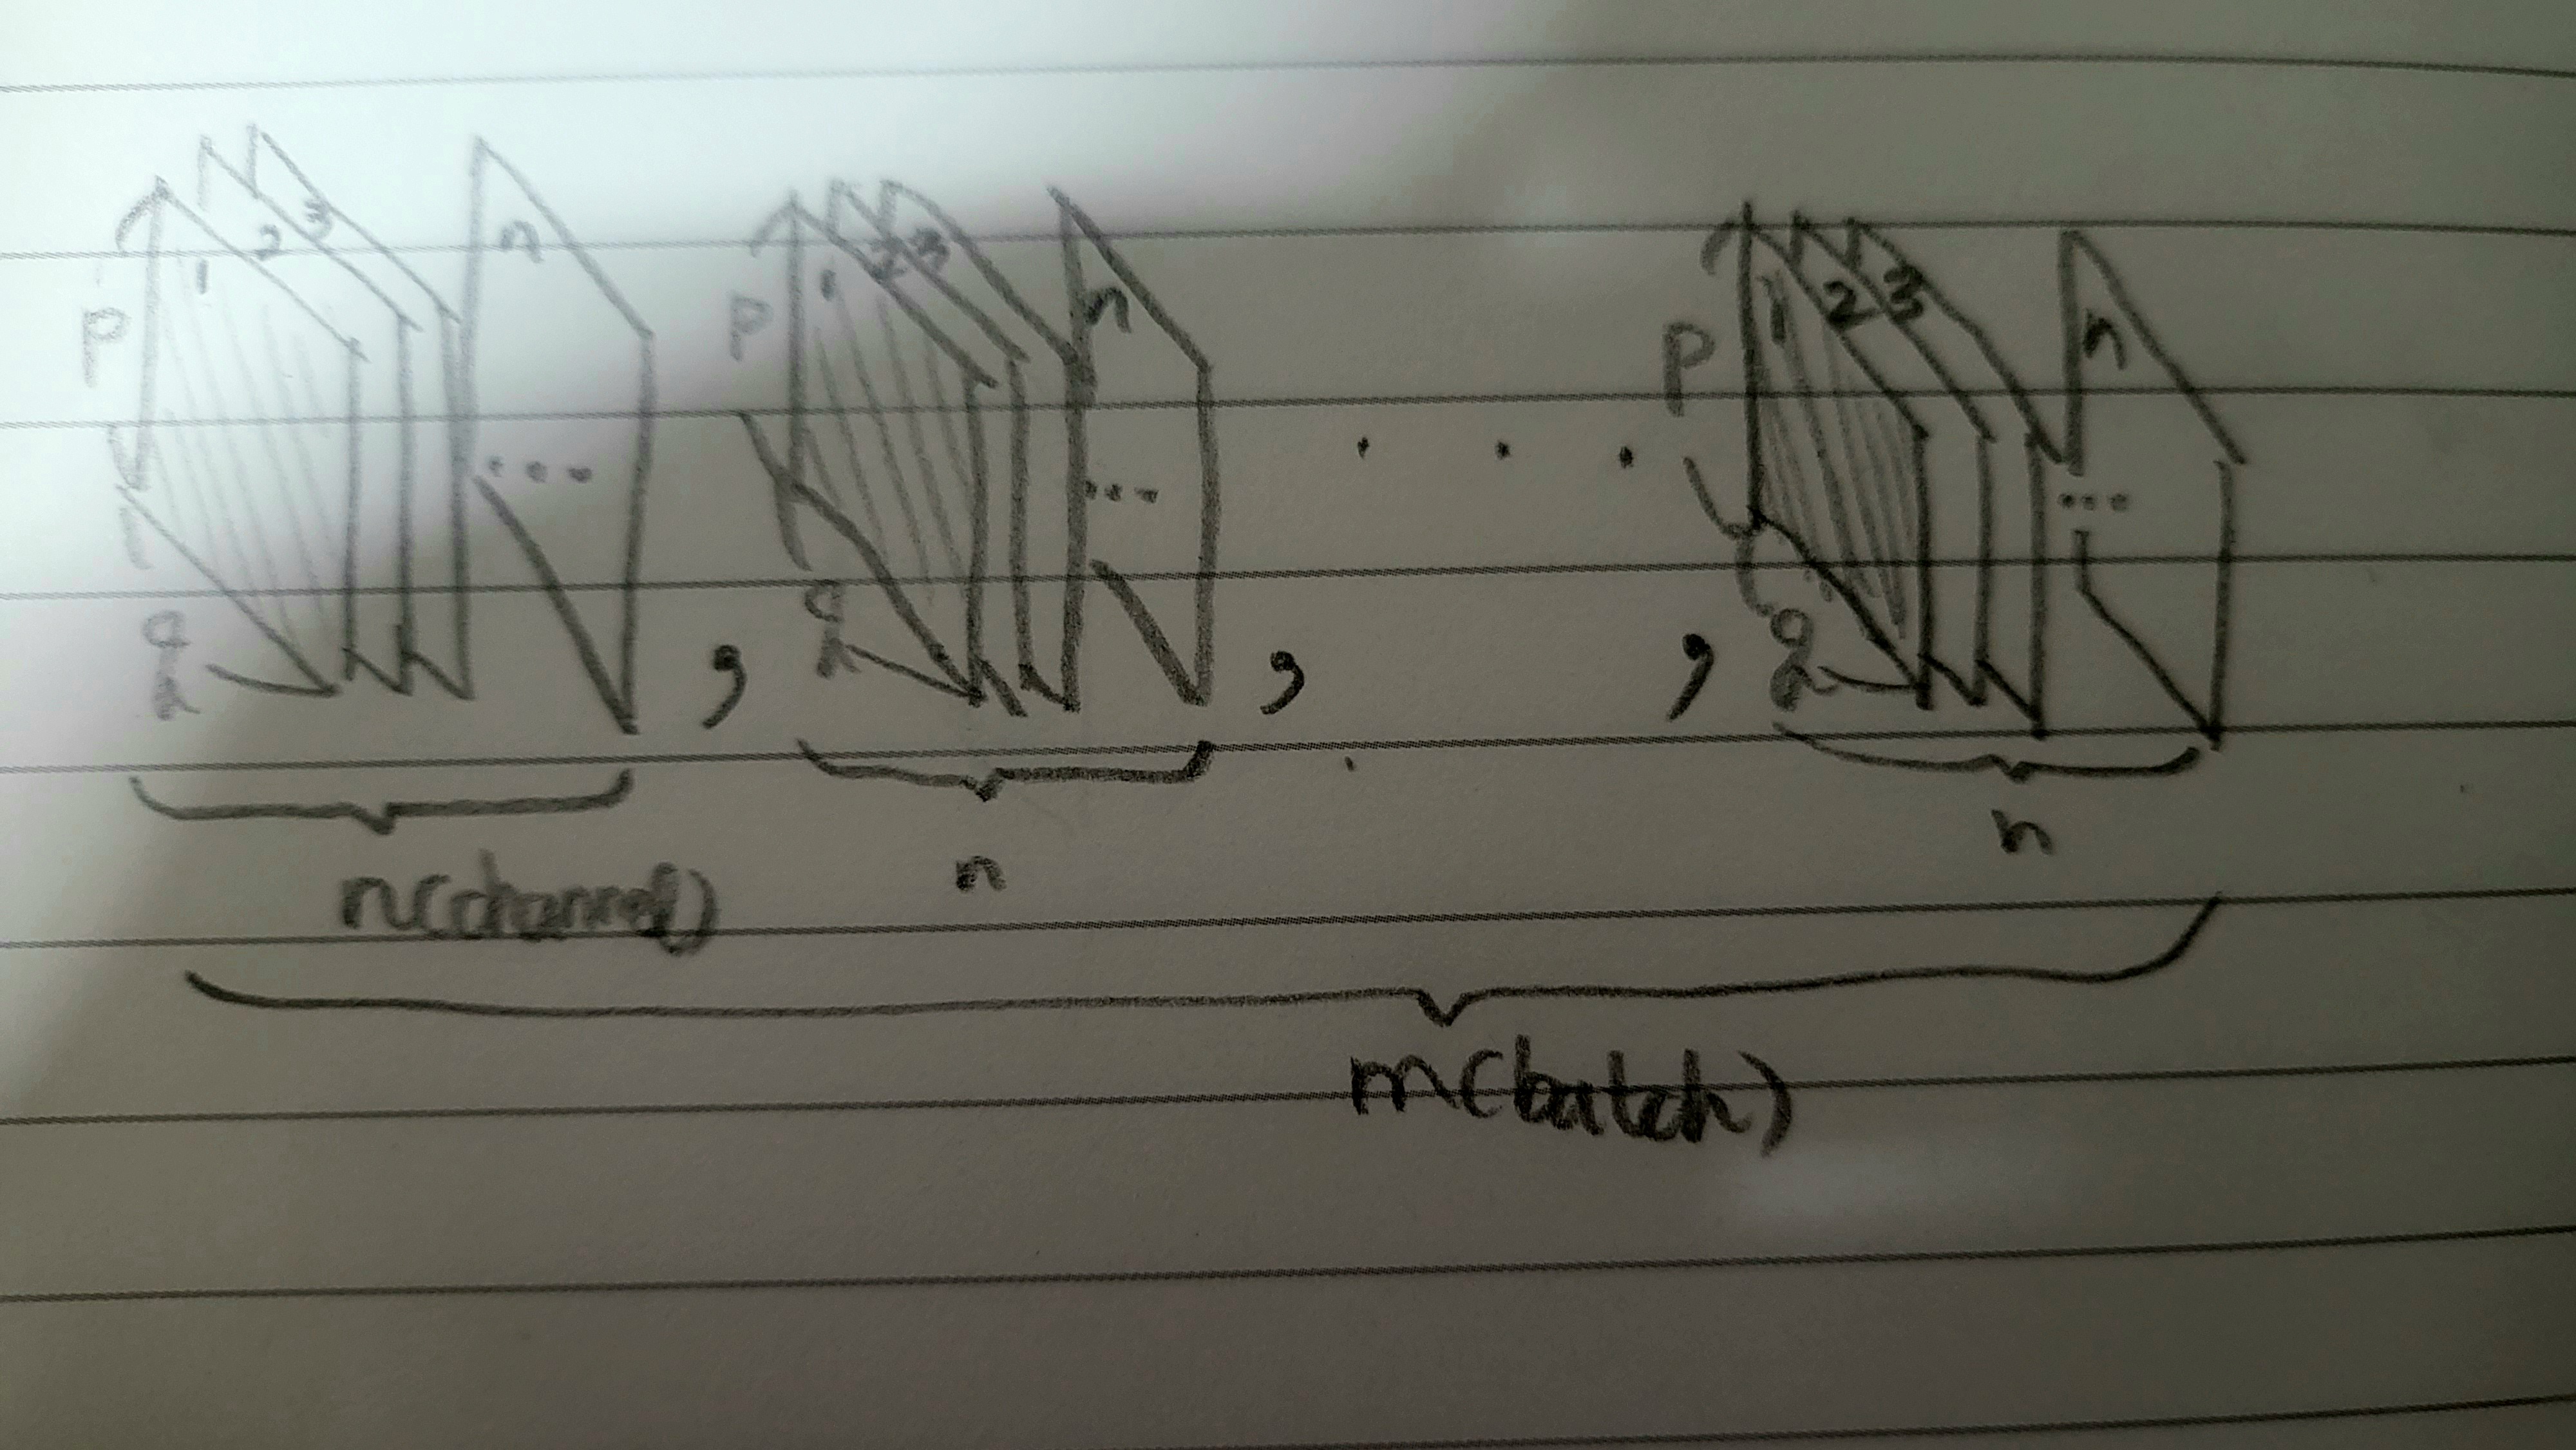 1 2 3 n 1 2 3 n 1 2 3 n
P ... P ... . . . P ...
q , q , , q
n(channel) n n
m(batch)